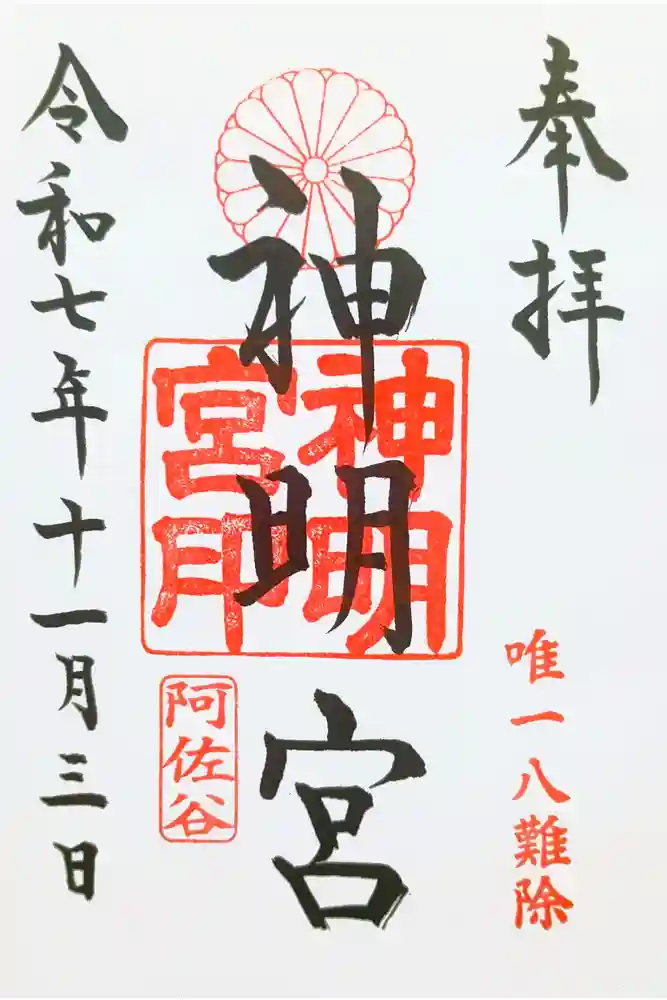 奉拝
唯一八難除
神明宮
神明
宮印
阿佐谷
令和七年十一月三日